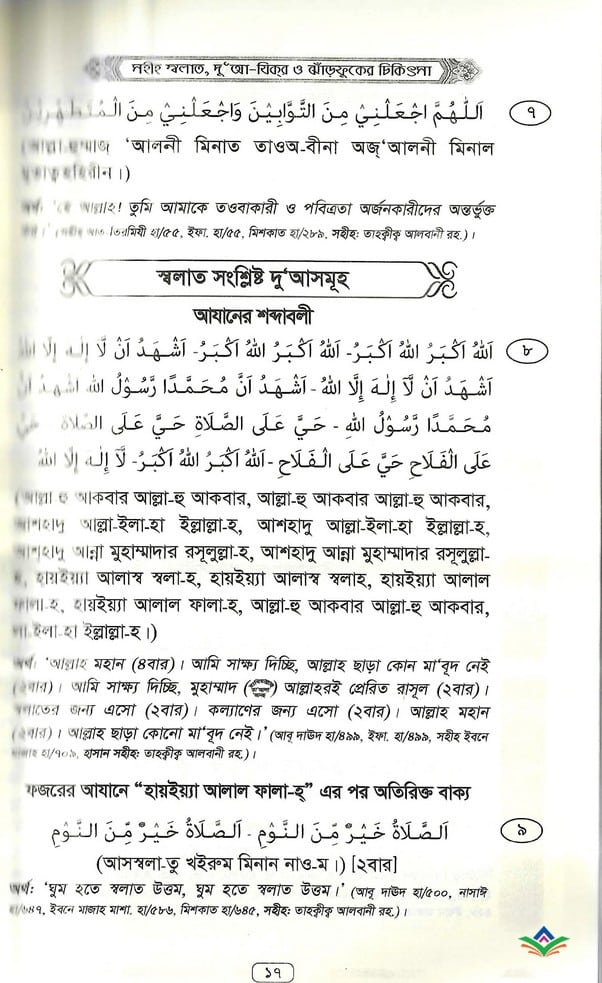 সহীহ স্বলাত, দু'আ-যিকর ও ঝাঁড়ফুঁকের চিকিৎসা
اَللّٰهُمَّ اجْعَلْنِيْ مِنَ التَّوَّابِيْنَ وَاجْعَلْنِيْ مِنَ الْمُتَطَهِّرِيْنَ ৭
'আলনী মিনাত তাওঅ-বীনা অজ্'আলনী মিনাল
অর্থ: 'হে আল্লাহ! তুমি আমাকে তওবাকারী ও পবিত্রতা অর্জনকারীদের অন্তর্ভুক্ত
তিরমিযী হা/৫৫, ইফা. হা/৫৫, মিশকাত হা/২৮৯, সহীহ: তাহক্বীক্ব আলবানী রহ.)।
স্বলাত সংশ্লিষ্ট দু'আসমূহ
আযানের শব্দাবলী
اَللّٰهُ اَكْبَرُ اَللّٰهُ اَكْبَرُ- اَللّٰهُ اَكْبَرُ اَللّٰهُ اَكْبَرُ- اَشْهَدُ اَنْ لَّا إِلٰهَ إِلَّا اللهُ ৮
اَشْهَدُ اَنْ لَّا إِلٰهَ إِلَّا اللهُ - اَشْهَدُ اَنَّ مُحَمَّدًا رَّسُوْلُ اللهِ اَشْهَدُ اَنَّ
مُحَمَّدًا رَّسُوْلُ اللهِ - حَيَّ عَلَى الصَّلَاةِ حَيَّ عَلَى الصَّلَاةِ حَيَّ
عَلَى الْفَلَاحِ حَيَّ عَلَى الْفَلَاحِ -اَللّٰهُ اَكْبَرُ اَللّٰهُ اَكْبَرُ- لَا إِلٰهَ إِلَّا اللهُ
(আল্লা হু আকবার আল্লা-হু আকবার, আল্লা-হু আল্লা-হু আকবার,
আশহাদু আল্লা-ইলা-হা ইল্লাল্লা-হ, আশহাদু আল্লা-ইলা-হা ইল্লাল্লা-হ,
আশহাদু আন্না মুহাম্মাদার রসূলুল্লা-হ, আশহাদু আন্না মুহাম্মাদার রসূলুল্লা-
হ, হায়ইয়্যা আলাস্ব স্বলা-হ, হায়ইয়্যা আলাস্ব স্বলাহ, হায়ইয়্যা আলাল
ফালা-হ, হায়ইয়্যা আলাল ফালা-হ, আল্লা-হু আকবার আল্লা-হু আকবার,
লা-ইলা-হা ইল্লাল্লা-হ।)
অর্থ: 'আল্লাহ মহান (৪বার)। আমি সাক্ষ্য দিচ্ছি, আল্লাহ ছাড়া কোন মা'বূদ নেই
(২বার)। আমি সাক্ষ্য দিচ্ছি, মুহাম্মাদ (ﷺ) আল্লাহরই প্রেরিত রাসূল (২বার)।
স্বলাতের জন্য এসো (২বার)। কল্যাণের জন্য এসো (২বার)। আল্লাহ মহান
(২বার)। আল্লাহ ছাড়া কোনো মা'বূদ নেই।' (আবূ দাউদ হা/৪৯৯, ইফা. হা/৪৯৯, সহীহ ইবনে
মাজাহ হা/৭০৯, হাসান সহীহ: তাহক্বীক্ব আলবানী রহ.)।
ফজরের আযানে "হায়ইয়্যা আলাল ফালা-হ্" এর পর অতিরিক্ত বাক্য
اَلصَّلَاةُ خَيْرٌ مِّنَ النَّوْمِ - اَلصَّلَاةُ خَيْرٌ مِّنَ النَّوْمِ ৯
(আসস্বলা-তু খইরুম মিনান নাও-ম।) [২বার]
অর্থ: 'ঘুম হতে স্বলাত উত্তম, ঘুম হতে স্বলাত উত্তম।' (আবূ দাউদ হা/৫০০, নাসাঈ
হা/৬৪৭, ইবনে মাজাহ মাশা. হা/৫৮৬, মিশকাত হা/৬৪৫, সহীহ: তাহক্বীক্ব আলবানী রহ.)।
১৭